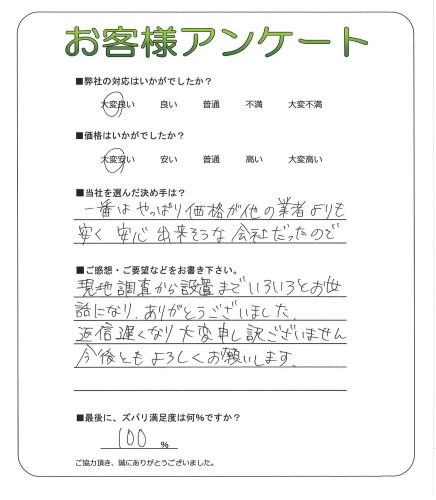 お客様アンケート
■弊社の対応はいかがでしたか？
大変良い 良い 普通 不満 大変不満
■価格はいかがでしたか？
大変安い 安い 普通 高い 大変高い
■当社を選んだ決め手は？
一番はやっぱり価格が他の業者よりも
安く 安心出来そうな会社だったので
■ご感想・ご要望などをお書き下さい。
現地調査から設置までいろいろとお世
話になり、ありがとうございました。
返信遅くなり大変申し訳ございません
今後ともよろしくお願いします。
■最後に、ズバリ満足度は何％ですか？
100 ％
ご協力頂き、誠にありがとうございました。